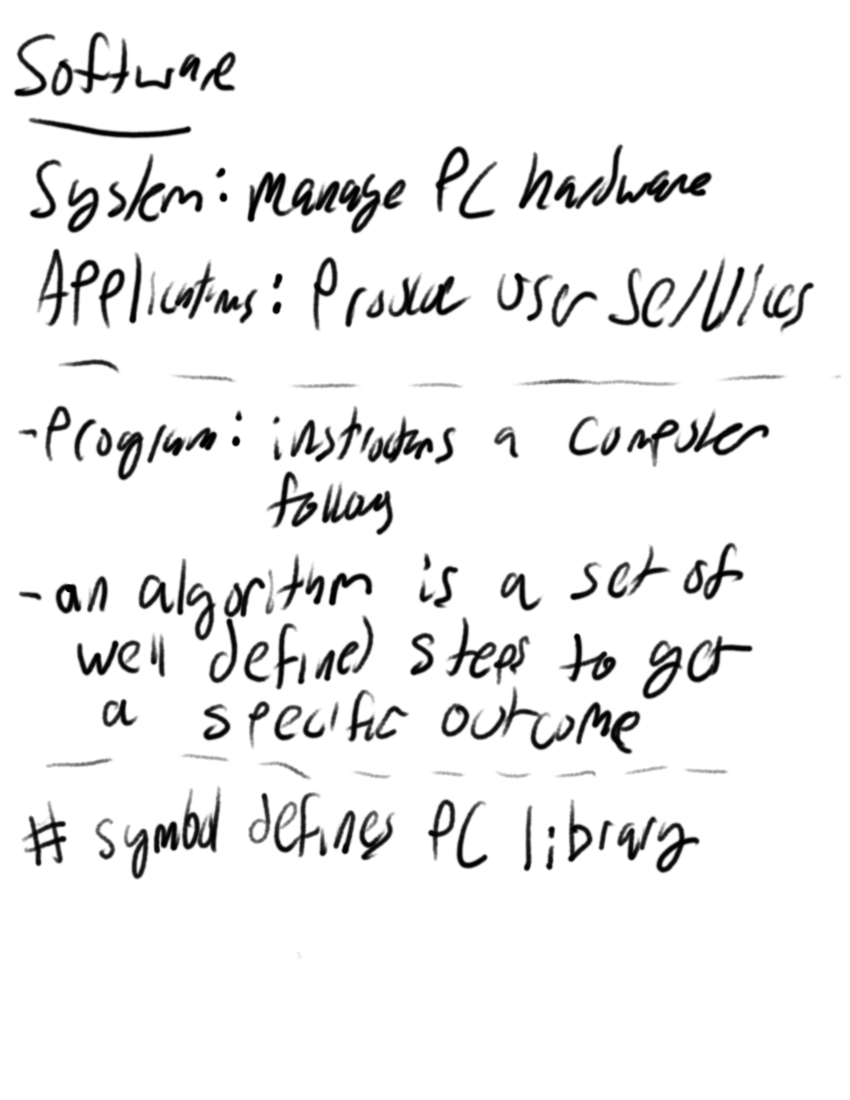 Software
System: Manage PC hardware
Applications: Provide user services
-Program: instructions a computer
follows
-an algorithm is a set of
well defined steps to get
a specific outcome
# symbol defines PC library